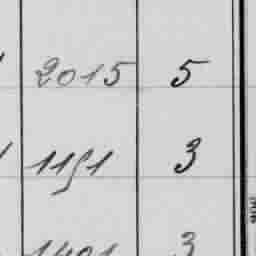 2015 5
1151 3
1401 3